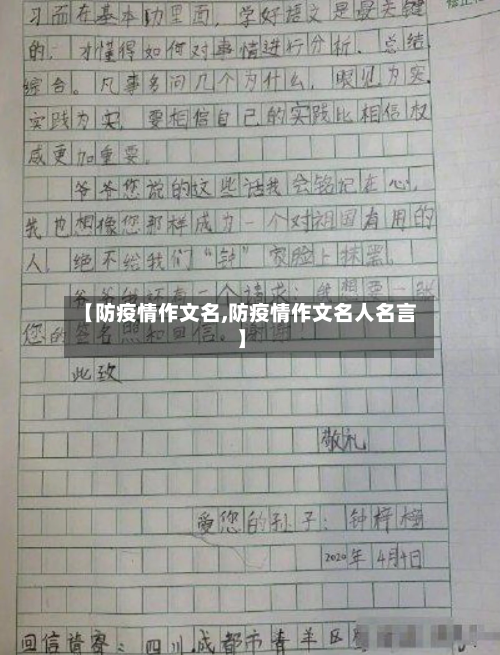 习而在基本功里面，学好语文是最关键
的，才懂得如何对事情进行分析、总结、
综合。凡事多问几个为什么，眼见为实，
实践为实，要相信自己的实践比相信权
威更加重要。
爷爷您说的这些话我会铭记在心，
我也想像您那样成为一个对祖国有用的
人，绝不给我们“钟”家脸上抹黑。
【防疫情作文名,防疫情作文名人名言
】
您的签名照和回信。谢谢
此致
敬礼
爱您的孙子：钟梓
2020年4月4日
回信皆寄：四川成都市青羊区